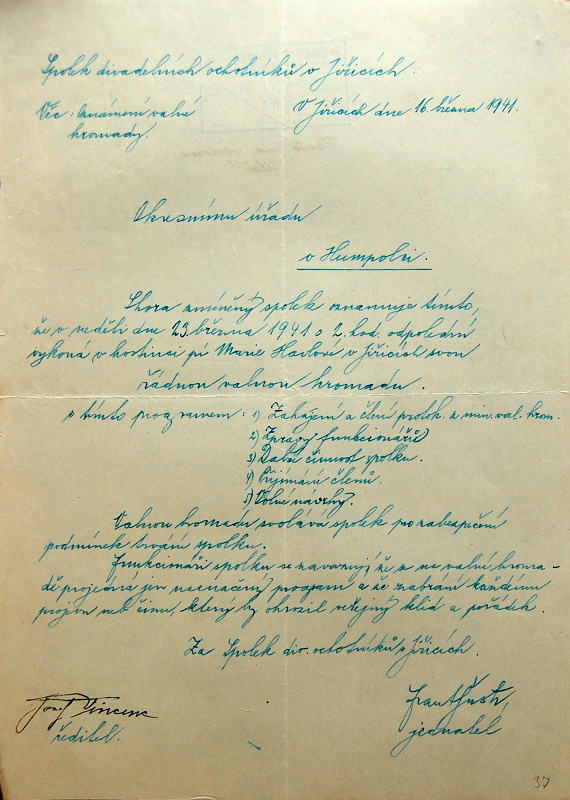 Spolek divadelních ochotníků v Jiřicích.
Věc: Oznámení valné V Jiřicích dne 16. března 1941.
hromady.
Okresnímu úřadu
v Humpolci.
Shora zmíněný spolek oznamuje tímto,
že v neděli dne 23. března 1941 o 2. hod. odpolední
vykoná v hostinci pí Marie Havlové v Jiřicích svou
řádnou valnou hromadu.
s tímto programem: 1) Zahájení a čtení protok. z min. val. hrom.
2) Zprávy funkcionářů
3) Další činnost spolku.
4) Přijímání členů.
5) Volné návrhy.
Valnou hromadu svolává spolek po zabezpečení
podmínek trvání spolku.
Funkcionáři spolku se zavazují, že se na valné hroma-
dě projedná jen naznačený program a že zabrání každému
projevu neb činu, který by ohrozil veřejný klid a pořádek.
Za Spolek div. ochotníků v Jiřicích.
Josef Vincenc
ředitel.
jednatel
37